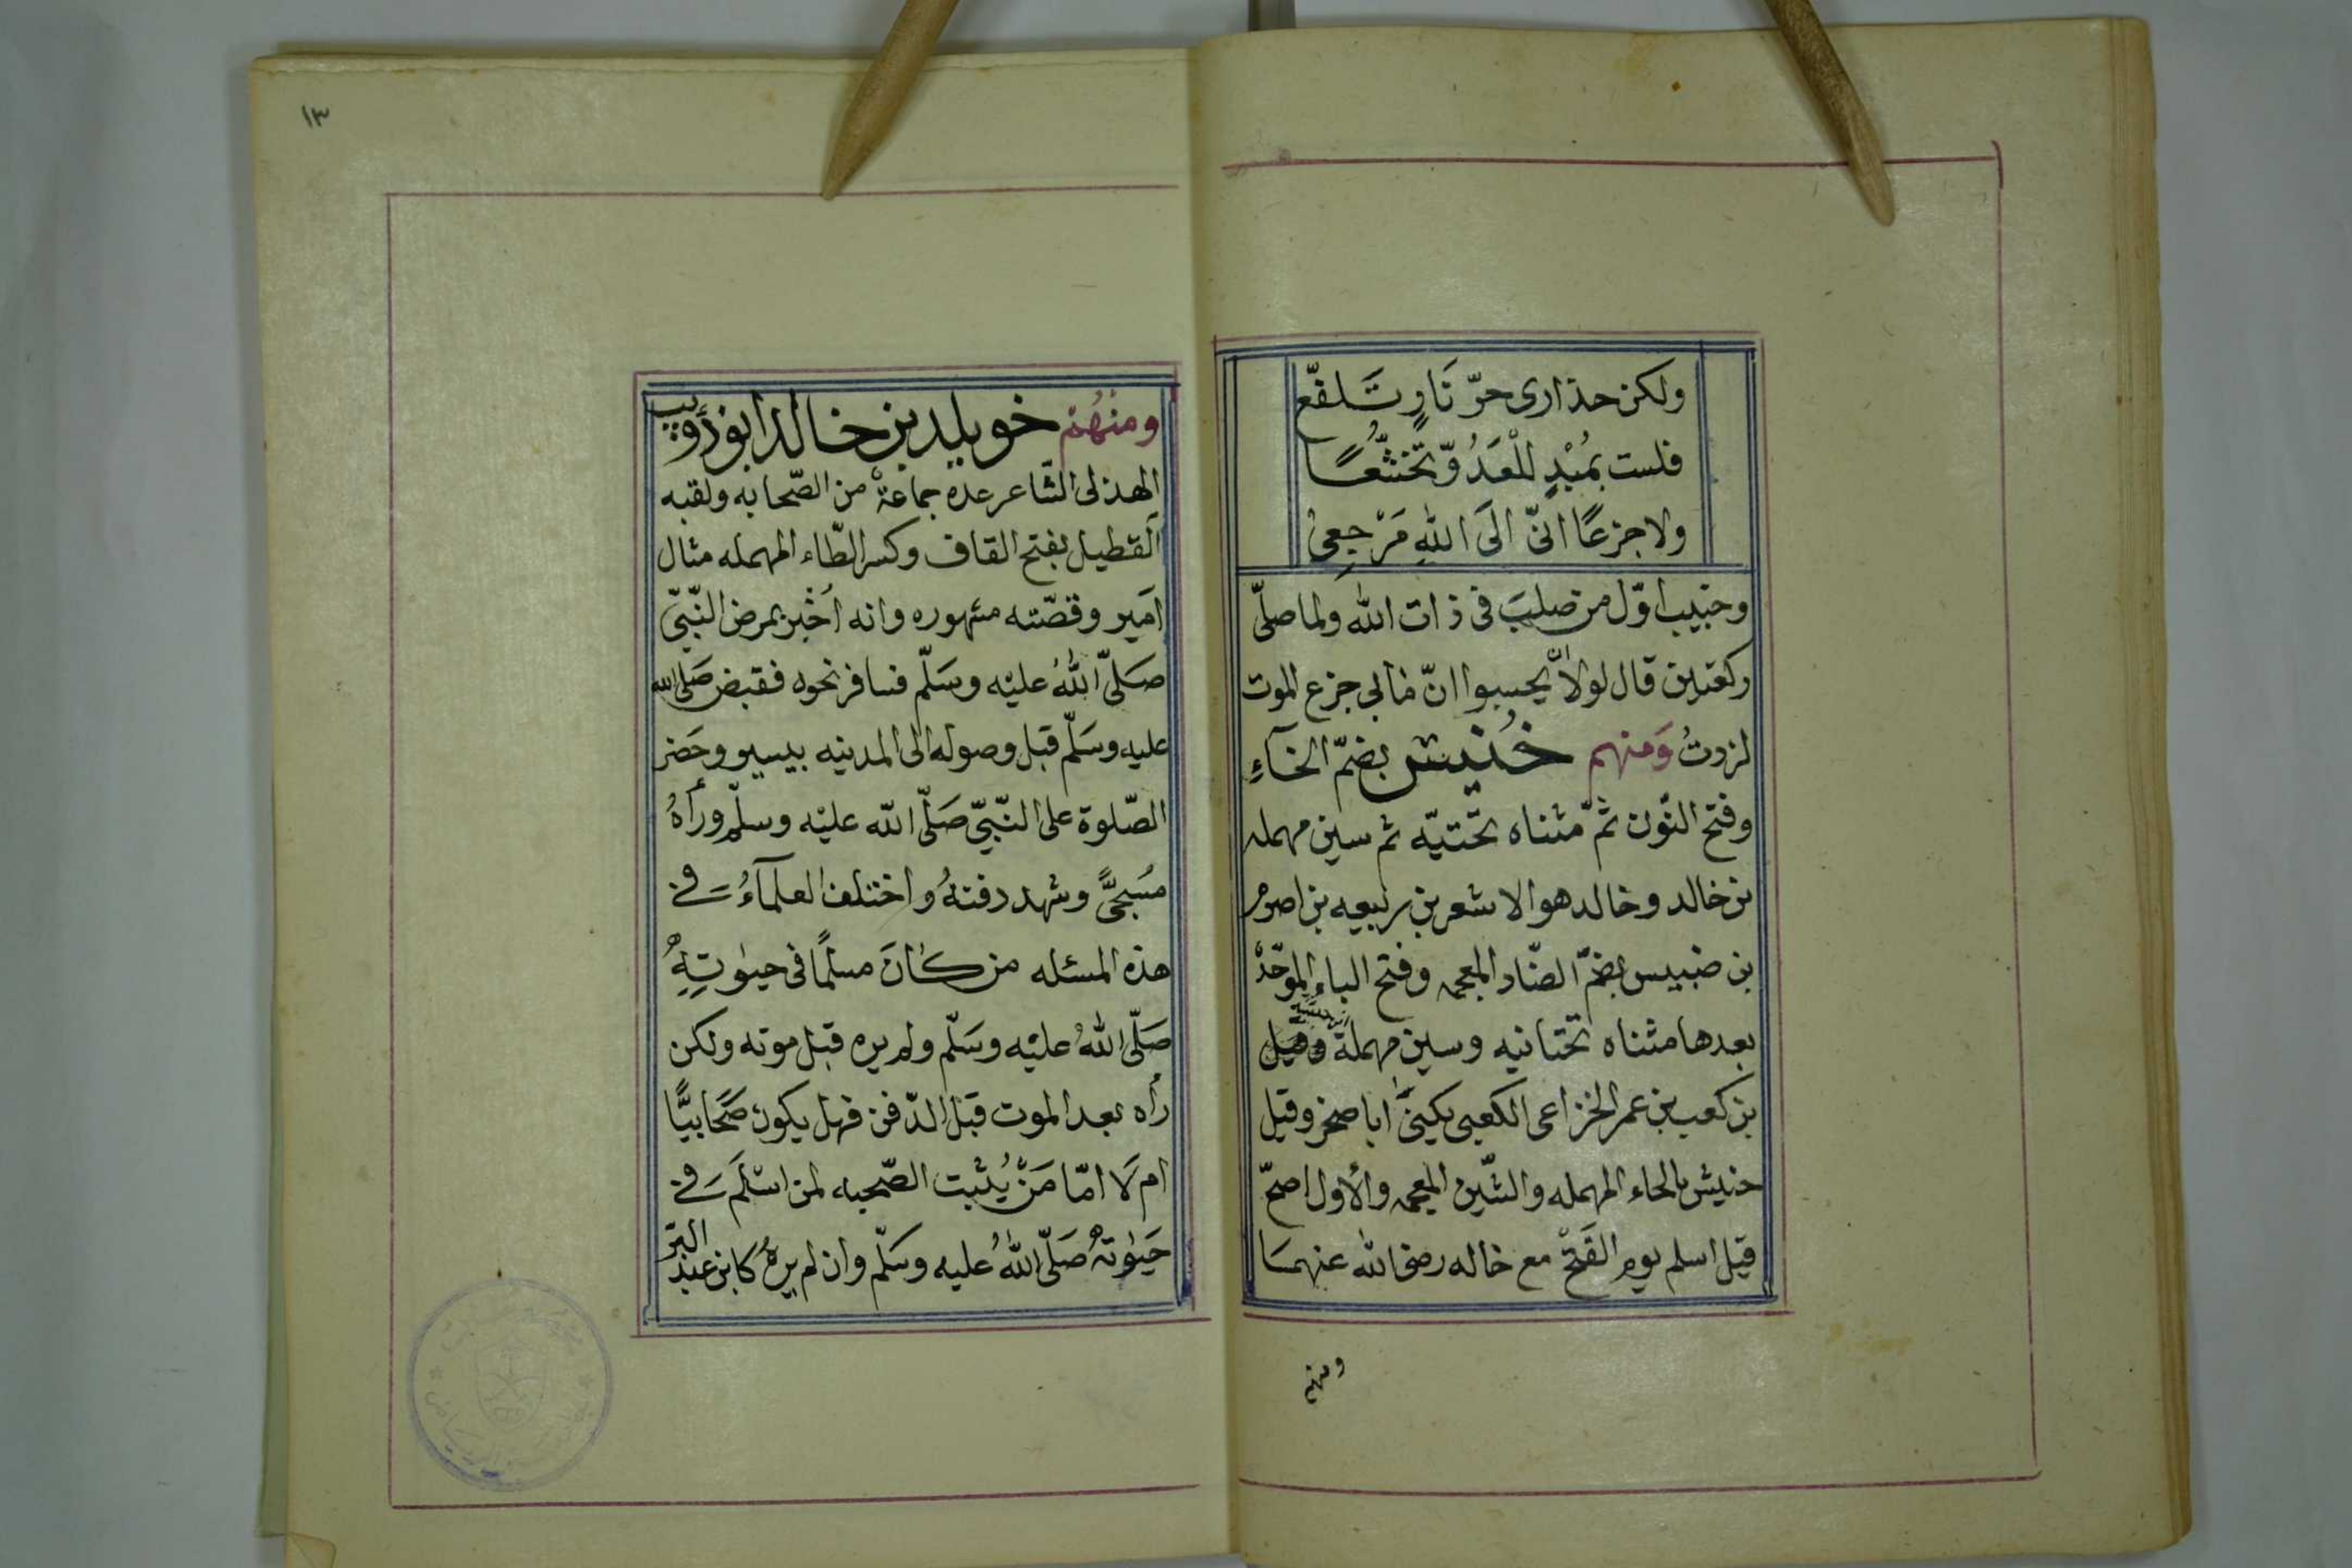 ولكن حذارى حرّ نَارٍ تَلفّع
فلست بمُبْدٍ للْعَدُوّ تَخَشُّعًا
ولا جزعًا انّى الَى اللهِ مَرْجِعِىْ
وخبيب اوّل من صلبَ فى ذات الله ولما صلّى
ركعتين قال لولا ان يحسبوا انّ مابى جزع الموت
لزدتُ وَمنهم خُنيس بضمّ الخآءِ
وفتح النّون ثمّ مثناه تحّتيّه ثم سين مهمله
بن خالد وخالد هو الاشعر بن ربيعه بن اصرم
بن ضبيس بضمّ الضّاد المعجمه وفتح الباء الموحّدة
بعدها مثناه تحّتانيه وسين مهملة
بن كعب بن عمر الخزاعى الكعبى يكينّى ابا صخر وقيل
حنيش بالحاء المهمله والشّين المعجمه والأول اصحّ
قيل اسلم يوم الفَتْح مع خاله رضى الله عنهمَا
ومنهم
١٣
ومنهُم خويلد بن خالد ابو ذؤيب
الهذلى الشّاعر عده جماعةْ من الصّحابه ولقبه
القطيل بفتح القاف وكسر الطّاء المهمله مثال
امَير وقصّته مشهوره وانه اُخْبر بمرض النّبىّ
صَلّى اللهُ عليْه وسَلّم فسافر نحوه فقبض صَلّى الله
عليه وسَلّم قبل وصوله الى المدينه بيسير وحَضر
الصّلوة على النّبىّ صَلّى الله عليْه وسلّم ورأهُ
مسُجىًّ وشهد دفنهُ واختلف العلمآءُ فى
هذه المسئله من كانَ مسلمًا فى حيوٰتِهِ
صَلّى اللهُ عليْه وسَلّم ولم يره قبل موته ولكن
رأه بعد الموت قبَل الدّفن فهل يكون صَحَابيًّا
ام لَا امّا مَنْ يُثبت الصّحبه لمن اسْلَم فى
حَيوٰته صَلّى اللهُ عليه وسَلّم وان لم يرهُ كابن عبد البّر